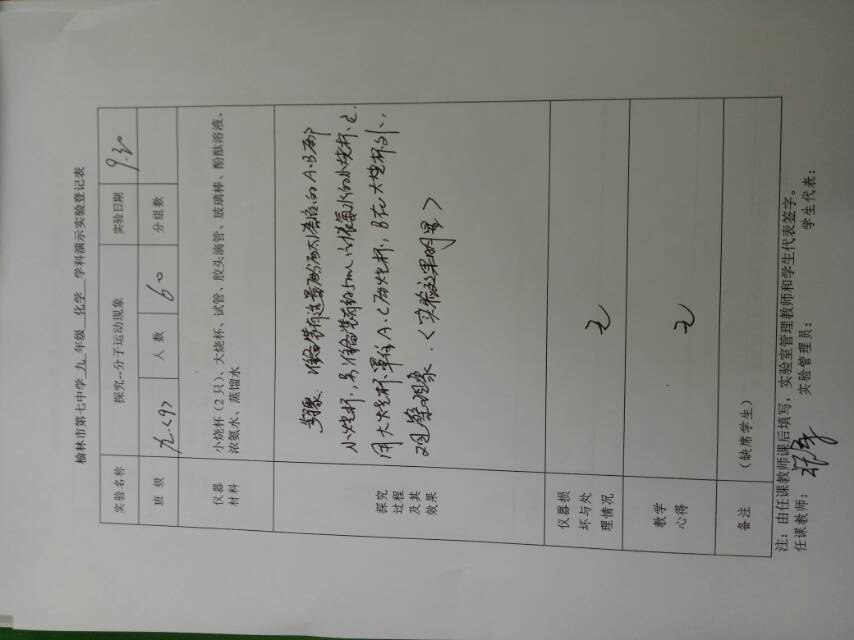 榆林市第七中学 九 年级 化学 学科演示实验登记表
实验名称 探究--分子运动现象 实验日期 9.20
班 级 九.(9) 人 数 60 分组数
仪器 材料 小烧杯(2只)、大烧杯、试管、胶头滴管、玻璃棒、酚酞溶液、
浓氨水、蒸馏水
探究
过程
及其
效果
步骤: 准备装有适量酚酞溶液的A.B两个
小烧杯,另准备装有约5mL浓氨水的小烧杯C.
用大烧杯罩住A.C两烧杯,B在大烧杯外,
观察现象.(实验效果明显)
仪器损
坏与处
理情况
无
教学
心得
无
备注 (缺席学生)
注:由任课教师课后填写,实验室管理教师和学生代表签字。
任课教师: 实验管理员: 学生代表: